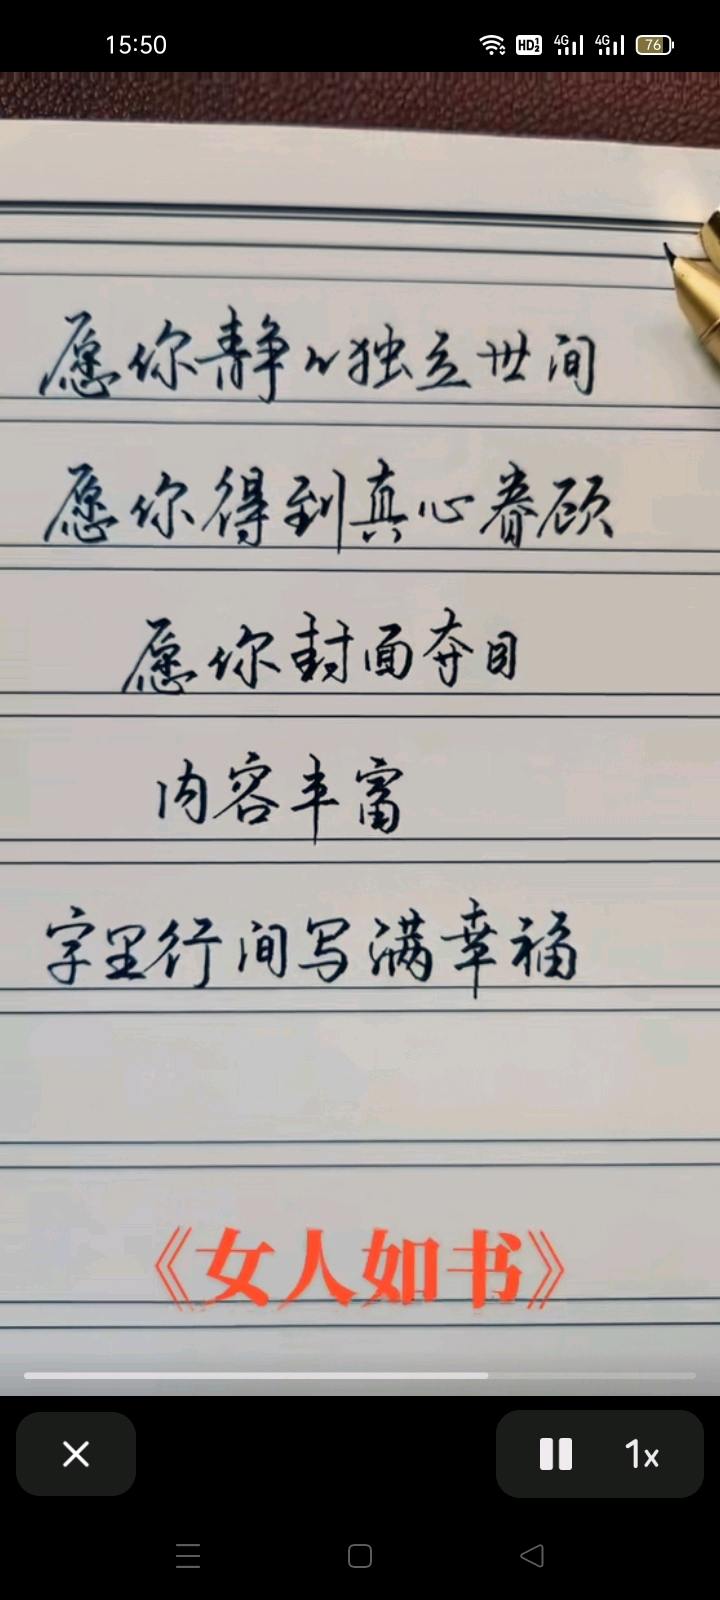 15:50
HD 1 2
4G
4G
76
愿你静々独立世间
愿你得到真心眷顾
愿你封面夺目
内容丰富
字里行间写满幸福
《女人如书》
1x